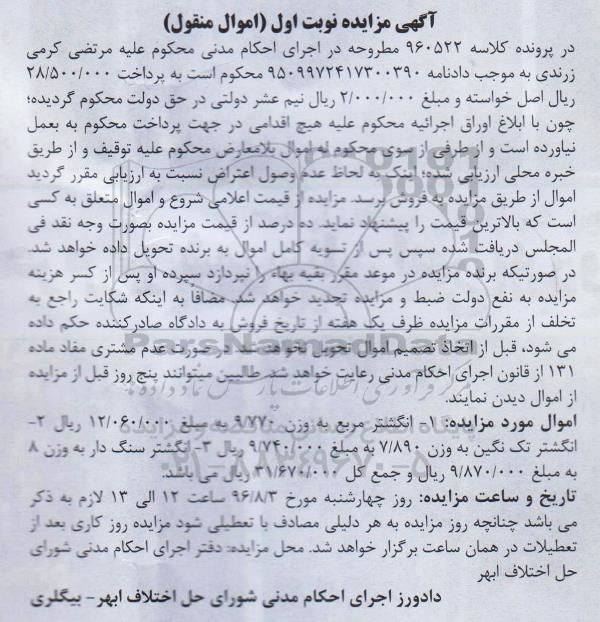 آگهی مزایده نوبت اول (اموال منقول)
در پرونده کلاسه ۹۶۰۵۲۲ مطروحه در اجرای احکام مدنی محکوم علیه مرتضی کرمی
زرندی به موجب دادنامه ۹۵۰۹۹۷۲۴۱۷۳۰۰۳۹۰ محکوم است به پرداخت ۲۸/۵۰۰/۰۰۰
ریال اصل خواسته و مبلغ ۲/۰۰۰/۰۰۰ ریال نیم عشر دولتی در حق دولت محکوم گردیده؛
چون با ابلاغ اوراق اجرائیه محکوم علیه هیچ اقدامی در جهت پرداخت محکوم به بعمل
نیاورده است و از طرفی از سوی محکوم له اموال بلامعارض محکوم علیه توقیف و از طریق
خبره محلی ارزیابی شده؛ اینک به لحاظ عدم وصول اعتراض نسبت به ارزیابی مقرر گردید
اموال از طریق مزایده به فروش برسد. مزایده از قیمت اعلامی شروع و اموال متعلق به کسی
است که بالاترین قیمت را پیشنهاد نماید. ده درصد از قیمت مزایده بصورت وجه نقد فی
المجلس دریافت شده سپس پس از تسویه کامل اموال به برنده تحویل داده خواهد شد.
در صورتیکه برنده مزایده در موعد مقرر بقیه بهاء را نپردازد سپرده او پس از کسر هزینه
مزایده به نفع دولت ضبط و مزایده تجدید خواهد شد. مضافاً به اینکه شکایت راجع به
تخلف از مقررات مزایده ظرف یک هفته از تاریخ فروش به دادگاه صادرکننده حکم داده
می شود، قبل از اتخاذ تصمیم اموال تحویل نخواهد شد. در صورت عدم مشتری مفاد ماده
۱۳۱ از قانون اجرای احکام مدنی رعایت خواهد شد. طالبین میتوانند پنج روز قبل از مزایده
از اموال دیدن نمایند.
اموال مورد مزایده: ۱- انگشتر مربع به وزن ۹/۷۷۰ به مبلغ ۱۲/۰۶۰/۰۰۰ ریال ۲-
انگشتر تک نگین به وزن ۷/۸۹۰ به مبلغ ۹/۷۴۰/۰۰۰ ریال ۳- انگشتر سنگ دار به وزن ۸
به مبلغ ۹/۸۷۰/۰۰۰ ریال و جمع کل ۳۱/۶۷۰/۰۰۰ ریال می باشد.
تاریخ و ساعت مزایده: روز چهارشنبه مورخ ۹۶/۸/۳ ساعت ۱۲ الی ۱۳ لازم به ذکر
می باشد چنانچه روز مزایده به هر دلیلی مصادف با تعطیلی شود مزایده روز کاری بعد از
تعطیلات در همان ساعت برگزار خواهد شد. محل مزایده: دفتر اجرای احکام مدنی شورای
حل اختلاف ابهر
دادورز اجرای احکام مدنی شورای حل اختلاف ابهر- بیگلری
ParsNamadData